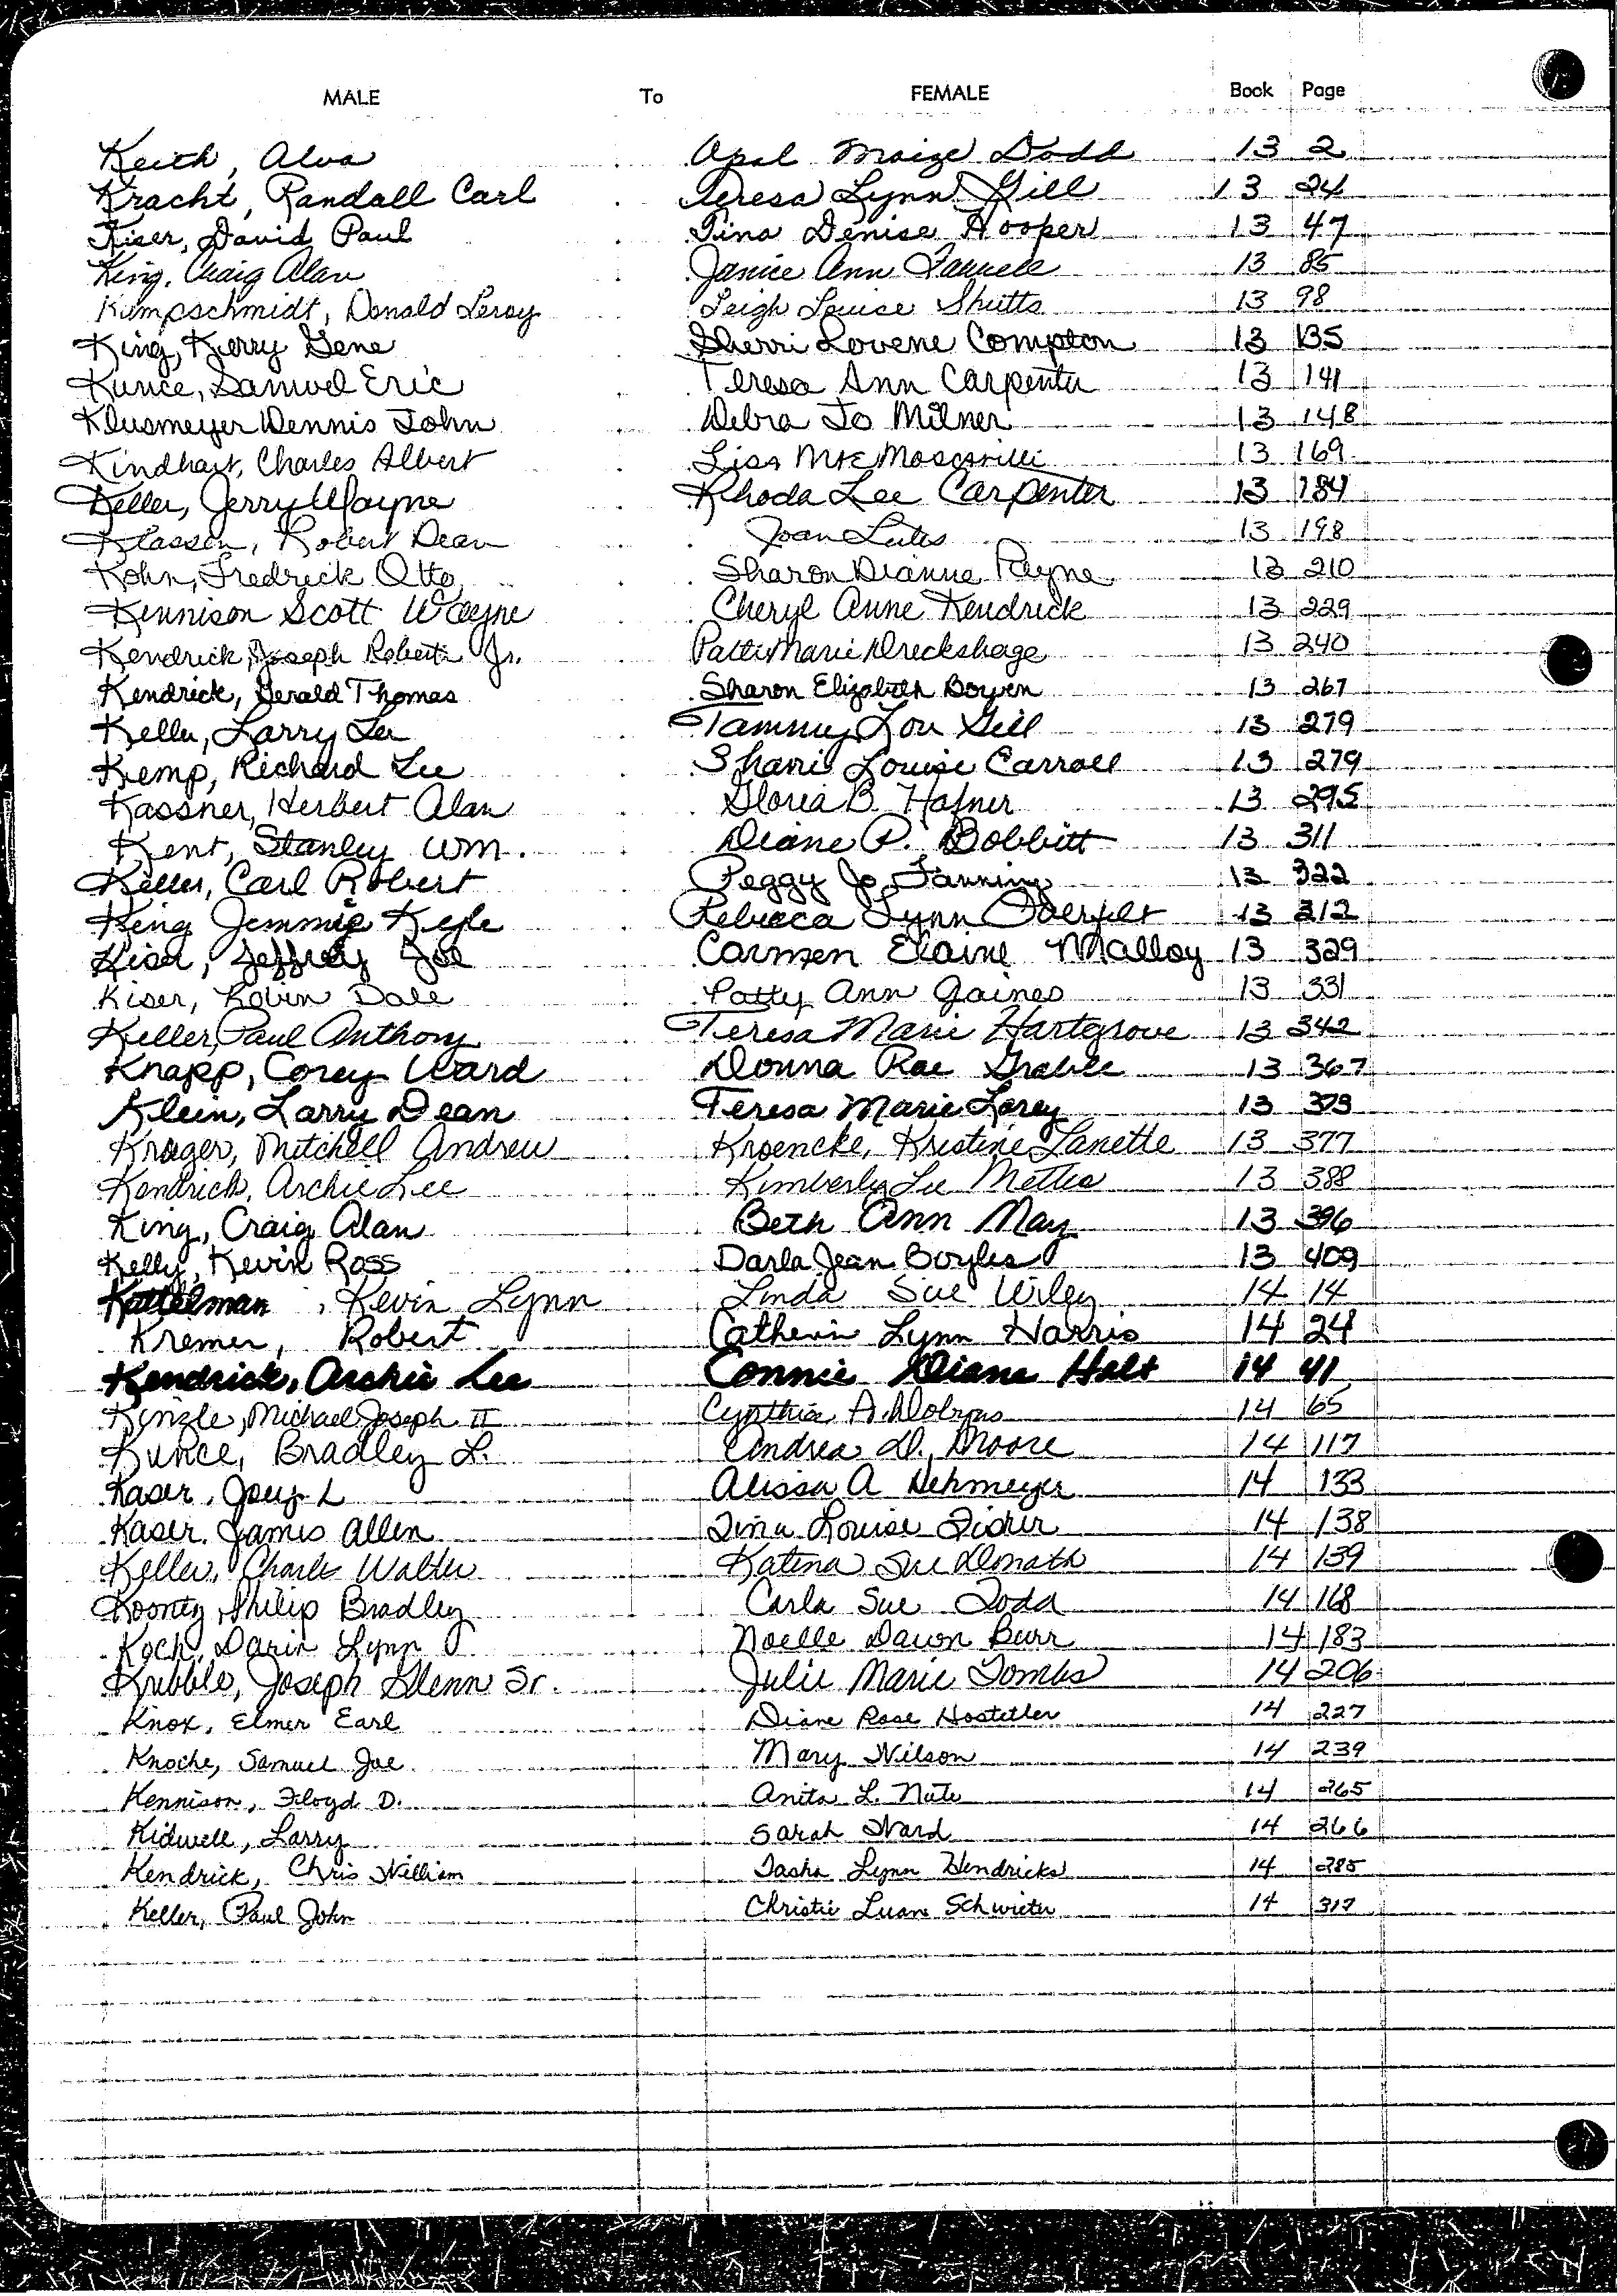 MALE To FEMALE Book Page
Keith, Alva Opal Maize Dodd 13 2
Kracht, Randall Carl Teresa Lynn Gill 13 24
Kiser, David Paul Tina Denise Hooper 13 47
King, Craig Alan Janice Ann 13 85
Kumpschmidt, Donald Leroy Leigh Louise Shutts 13 98
King, Kerry Gene Sherri Lovene Compton 13 135
Kunce, Samuel Eric Teresa Ann Carpenter 13 141
Klusmeyer Dennis John Debra Jo Milner 13 148
Kindhart, Charles Albert Lisa 13 169
Keller, Jerry Wayne Rhoda Lee Carpenter 13 184
Klassen, Robert Dean Joan Lutes 13 198
Kohn, Fredrick Otto Sharon Dianne Payne 13 210
Kennison Scott Wayne Cheryl Anne Kendrick 13 229
Kendrick, Joseph Robert Jr. Patti Marie Dreckshage 13 240
Kendrick, Gerald Thomas Sharon Elizabeth Bowen 13 267
Keller, Larry Lee Tammy Lou Gill 13 279
Kemp, Richard Lee Sharri Louise Carroll 13 279
Kassner, Herbert Alan Gloria B. Hafner 13 295
Kent, Stanley Wm. Diane P. Bobbitt 13 311
Keller, Carl Robert Peggy Jo Fanning 13 322
King Jimmie Kyle Rebecca Lynn Oderfelt 13 312
Kiser, Jeffrey Joe Carmen Elaine Malloy 13 329
Kiser, Robin Dale Patty Ann Gaines 13 331
Keller, Paul Anthony Teresa Marie Hartgrove 13 342
Knapp, Corey Ward Donna Rae Grable 13 367
Klein, Larry Dean Teresa Marie Lorey 13 373
Kroger, Mitchell Andrew Kroencke, Kristine Lanette 13 377
Kendrick, Archie Lee Kimberly Lee Mettes 13 388
King, Craig Alan Beth Ann May 13 396
Kelly, Kevin Ross Darla Jean Boyles 13 409
Kattelman, Kevin Lynn Linda Sue Wiley 14 14
Kremer, Robert Catherin Lynn Harris 14 24
Kendrick, Archie Lee Connie Diane Holt 14 41
Kinzle, Michael Joseph II Cynthia A. 14 65
Kunce, Bradley L. Andrea D. Moore 14 117
Kaser, Joey L Alissa A Dehmeyer 14 133
Kaser, James Allen Tina Louise Fisher 14 138
Keller, Charles Walter Katina Sue Donath 14 139
Koontz, Philip Bradley Carla Sue Todd 14 168
Koch, Darin Lynn Noelle Dawn Burr 14 183
Kribble, Joseph Glenn Sr. Julie Marie Tombs 14 206
Knox, Elmer Earl Diane Rose Hostetler 14 227
Knoche, Samuel Joe Mary Wilson 14 239
Kennison, Floyd D. Anita L. Nute 14 265
Kidwell, Larry Sarah Ward 14 266
Kendrick, Chris William Tasha Lynn Hendricks 14 285
Keller, Paul John Christie Luann Schwieter 14 317